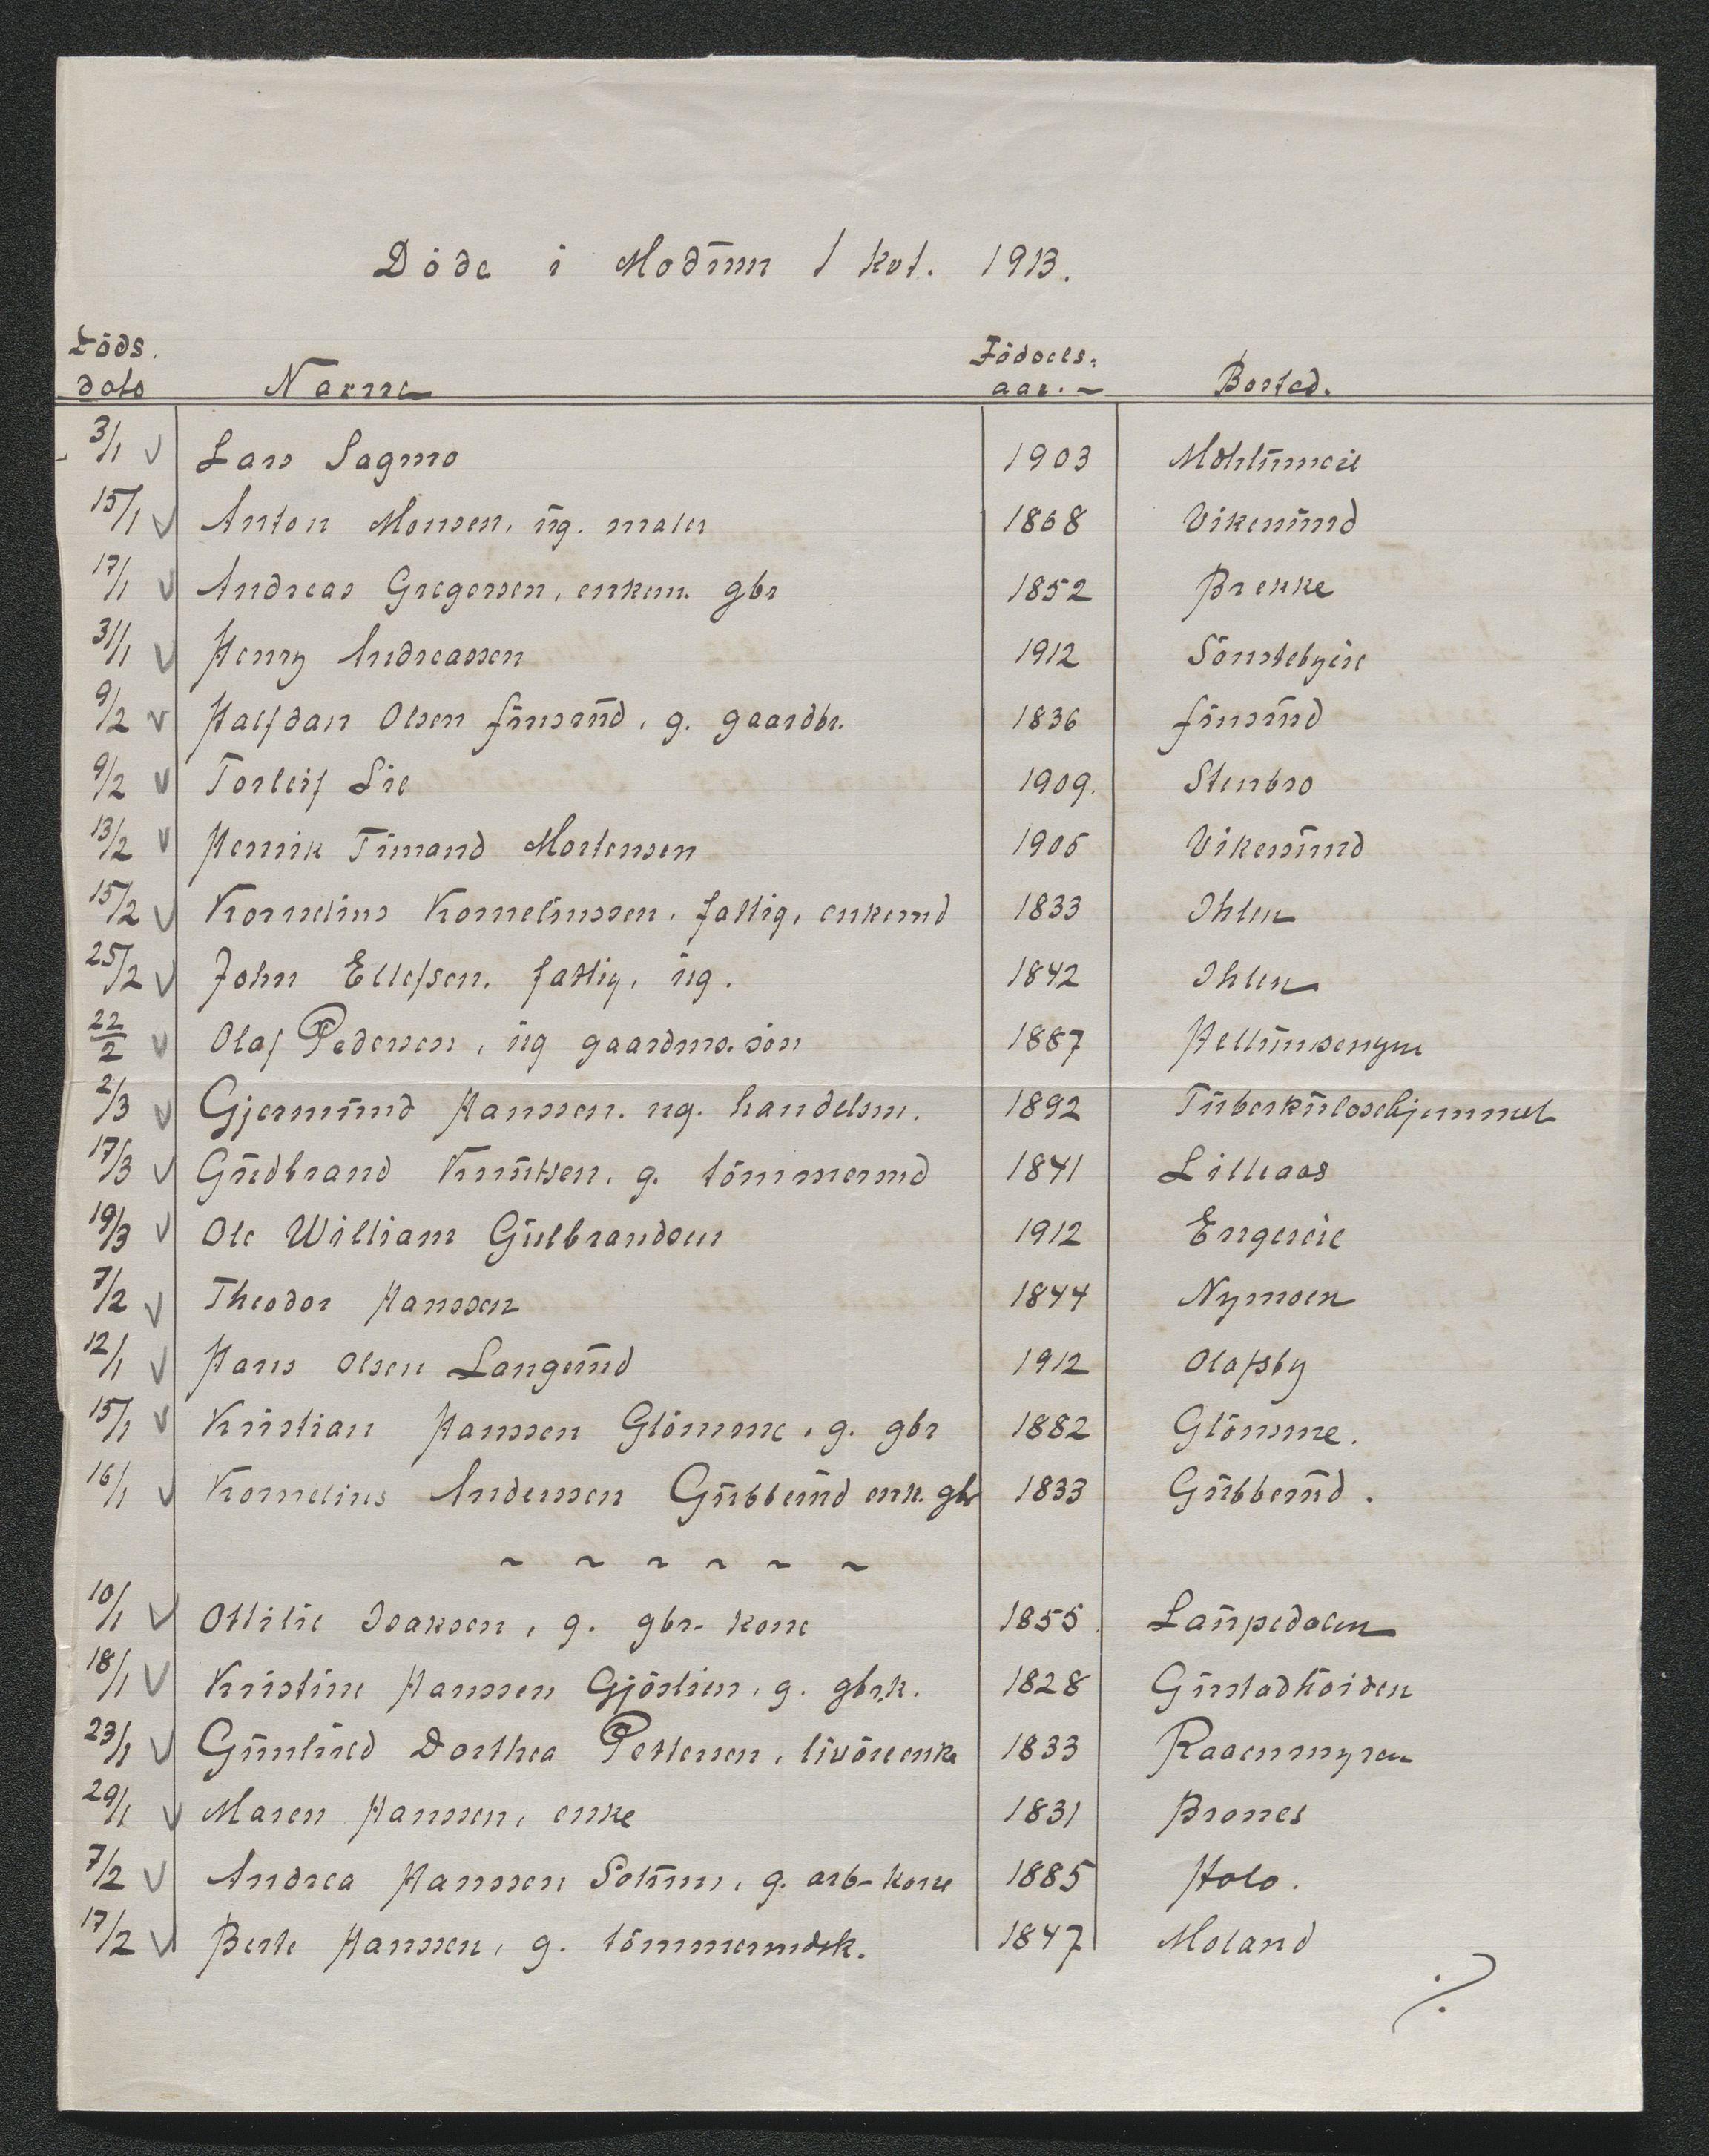 Döde i Modum 1 kvt. 1913.
Döds. Födsels-
dato Navne aar. Bosted.
3/1 V Lars Sagmo 1903
15/1 V Anton Monsen, ug. maler 1868 Vikersund
17/1 V Andreas Gregersen, enkem. gbr 1852 Brekke
31/1 V Henry Andreassen 1912 Sönstebyeie
9/2 V Halfdan Olsen Finsrud, g. gaardbr. 1836 Finsrud
9/2 V Torleif Lie 1909. Stenbro
13/2 V Henrik Timand Mortensen 1906 Vikersund
15/2 V Kornelius Korneliussen, fattig, enkemd 1833 Ihlen
25/2 V John Ellefsen, fattig, ug. 1842 Ihlen
22/2 V Olaf Pedersen, ug gaardms. sön 1887 Hellumsengen
2/3 V Gjermund Hanssen. ug. handelsm. 1892 Tuberkulosehjemmet
17/3 V Gudbrand Knutsen, g. tömmermd 1841 Lilleaas
19/3 V Ole William Gulbrandsen 1912 Engereie
7/2 V Theodor Hanssen 1844 Nymoen
12/1 V Hans Olsen Langerud 1912 Olafsby
15/1 V Kristian Hanssen Glömme, g. gbr 1882 Glömme.
16/1 V Kornelius Anderssen Gubberud enk. gbr 1833 Gubberud.
~ ~ ~ ~ ~ ~
10/1 V Ottilie Isaksen, g. gbr- kone 1855 Laupedalen
18/1 V Kristine Hanssen Gjöslien, g. gbr.k. 1828 Gustadhöiden
23/1 V Gunhild Dorthea Pettersen, livöreenke 1833 Raaenmyren
29/1 V Maren Hanssen, enke 1831 Brones
7/2 V Andrea Hanssen Solum, g. arb- kone 1885 Holo.
17/2 V Berte Hanssen, g. tömmermdsk. 1847 Moland
./.